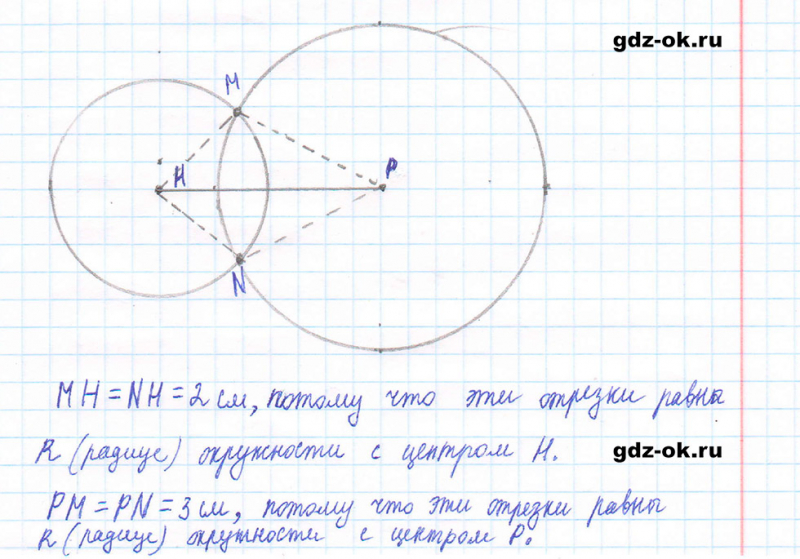 gdz-ok.ru
M
H
P
N
MH = NH = 2 см, потому что эти отрезки равны
R (радиусу) окружности с центром H.
gdz-ok.ru
PM = PN = 3 см, потому что эти отрезки равны
R (радиусу) окружности с центром P.